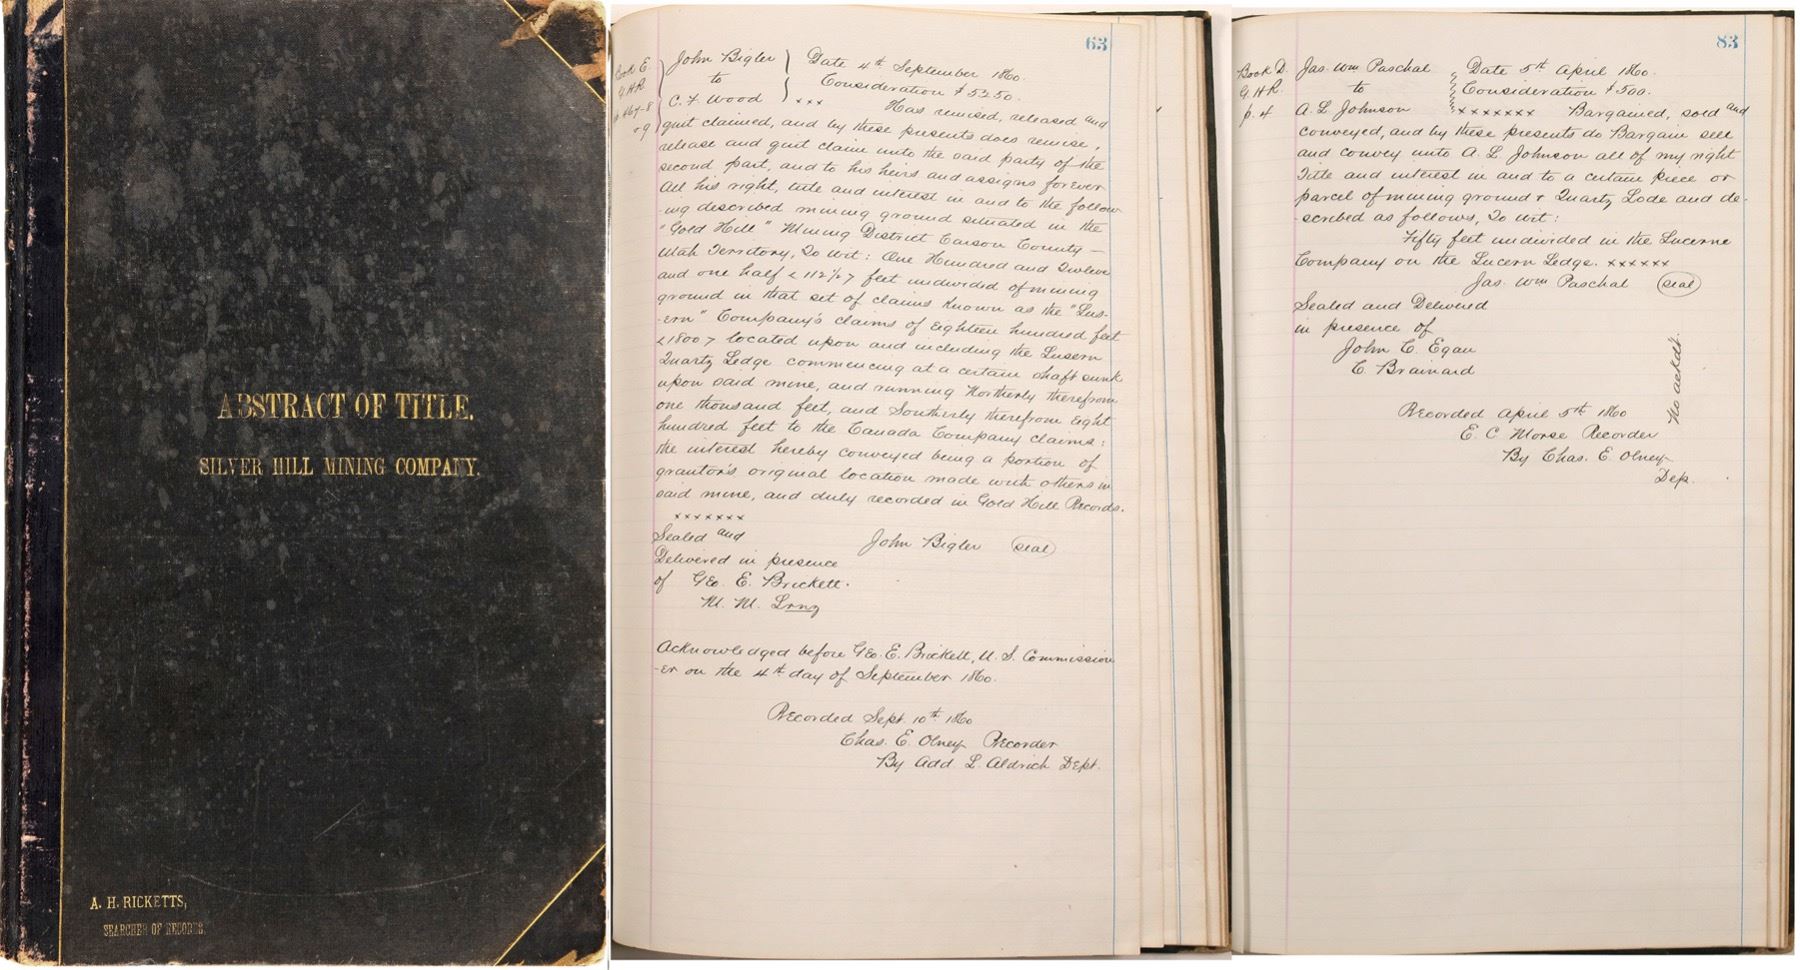 ABSTRACT OF TITLE.
SILVER HILL MINING COMPANY.
A. H. RICKETTS,
SEARCHER OF RECORDS.
63
Book E.
G.H.R.
p. 467-8
+9
John Bigler
to
C. F. Wood
Date 4th September 1860.
Consideration $ 5250.
xxx Has remised, released and
quit claimed, and by these presents does remise,
release and quit claim unto the said party of the
second part, and to his heirs and assigns forever
All his right, title and interest in and to the follow-
-ing described mining ground situated in the
"Gold Hill" Mining District Carson County —
Utah Territory, To wit: One Hundred and Twelve
and one half <112½> feet undivided of mining
ground in that set of claims known as the "Lus-
-ern" Company's claims of Eighteen hundred feet
<1800> located upon and including the Lusern
Quartz Ledge commencing at a certain shaft sunk
upon said mine, and running Northerly therefrom
one thousand feet, and Southerly therefrom Eight
hundred feet to the Canada Company claims:
the interest hereby conveyed being a portion of
grantor's original location made with others in
said mine, and duly recorded in Gold Hill Records.
xxxxxxx
Sealed and
John Bigler (seal)
Delivered in presence
of Geo. E. Brickett.
M. M. Long
Acknowledged before Geo. E. Brickett, U. S. Commission
-er on the 4th day of September 1860.
Recorded Sept. 10th 1860
Chas. E. Olney Recorder
By Add L. Aldrich Dept.
83
Book D.
G.H.R.
p. 4
Jas. Wm Paschal
to
A. L. Johnson
Date 5th April 1860.
Consideration $ 500.
xxxxxxx Bargained, sold and
conveyed, and by these presents do Bargain sell
and convey unto A. L. Johnson all of my right
Title and interest in and to a certain piece or
parcel of mining ground & Quartz Lode and de-
-scribed as follows, To wit:
Fifty feet undivided in the Lucerne
Company on the Lucern Ledge. xxxxxx
Jas. Wm Paschal (seal)
Sealed and Delivered
in presence of
John C. Egan
C. Brainard
No ackdt.
Recorded April 5th 1860
E. C. Morse Recorder
By Chas. E. Olney
Dep.